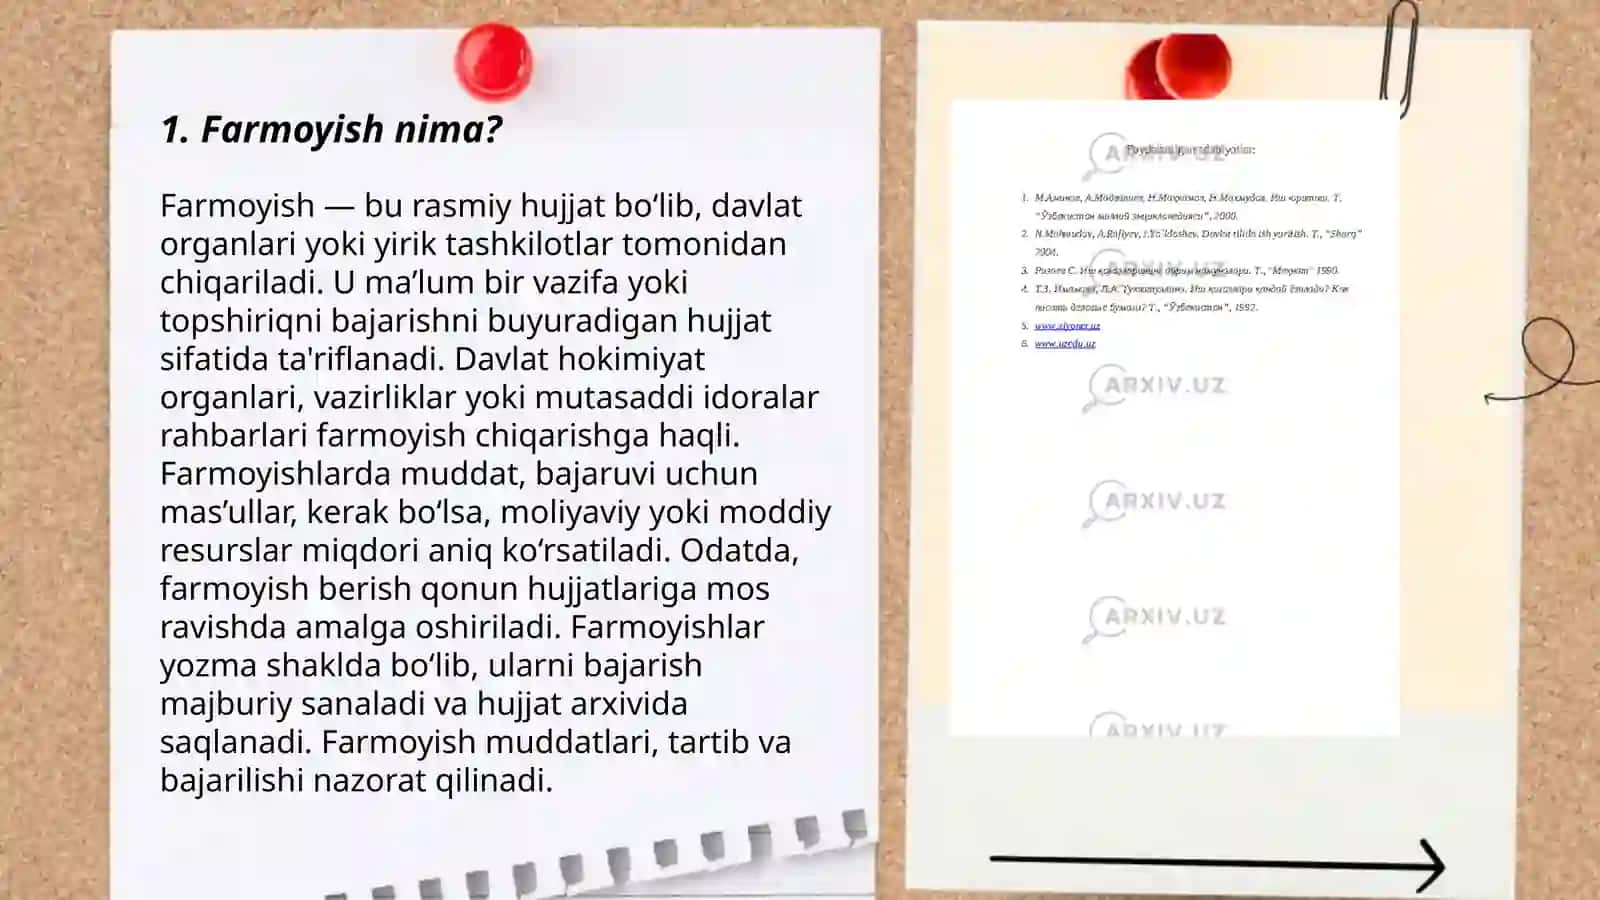 1. Farmoyish nima?
Farmoyish — bu rasmiy hujjat bo‘lib, davlat
organlari yoki yirik tashkilotlar tomonidan
chiqariladi. U ma’lum bir vazifa yoki
topshiriqni bajarishni buyuradigan hujjat
sifatida ta'riflanadi. Davlat hokimiyat
organlari, vazirliklar yoki mutasaddi idoralar
rahbarlari farmoyish chiqarishga haqli.
Farmoyishlarda muddat, bajaruvi uchun
mas’ullar, kerak bo‘lsa, moliyaviy yoki moddiy
resurslar miqdori aniq ko‘rsatiladi. Odatda,
farmoyish berish qonun hujjatlariga mos
ravishda amalga oshiriladi. Farmoyishlar
yozma shaklda bo‘lib, ularni bajarish
majburiy sanaladi va hujjat arxivida
saqlanadi. Farmoyish muddatlari, tartib va
bajarilishi nazorat qilinadi.
ARXIV.UZ
1. М.Аминов, А.Мадвалиев, Н.Маҳкамов, Н.Махмудов. Иш юритиш. Т.
“Ўзбекистон миллий энциклопедияси”, 2000.
2. N.Mahmudov, A.Rafiyev, I.Yo`ldoshev. Davlat tilida ish yuritish. T., “Sharq”
2004.
ARXIV.UZ
3. Ризаев С. Иш қоғозларининг айрим намуналари. Т., “Меҳнат” 1990.
4. Иш қоғозлари қандай ёзилади? Как
писать деловые бумаги? Т., “Ўзбекистон”, 1992.
5. www.ziyonet.uz
6. www.uzedu.uz
ARXIV.UZ
ARXIV.UZ
ARXIV.UZ
ARXIV.UZ